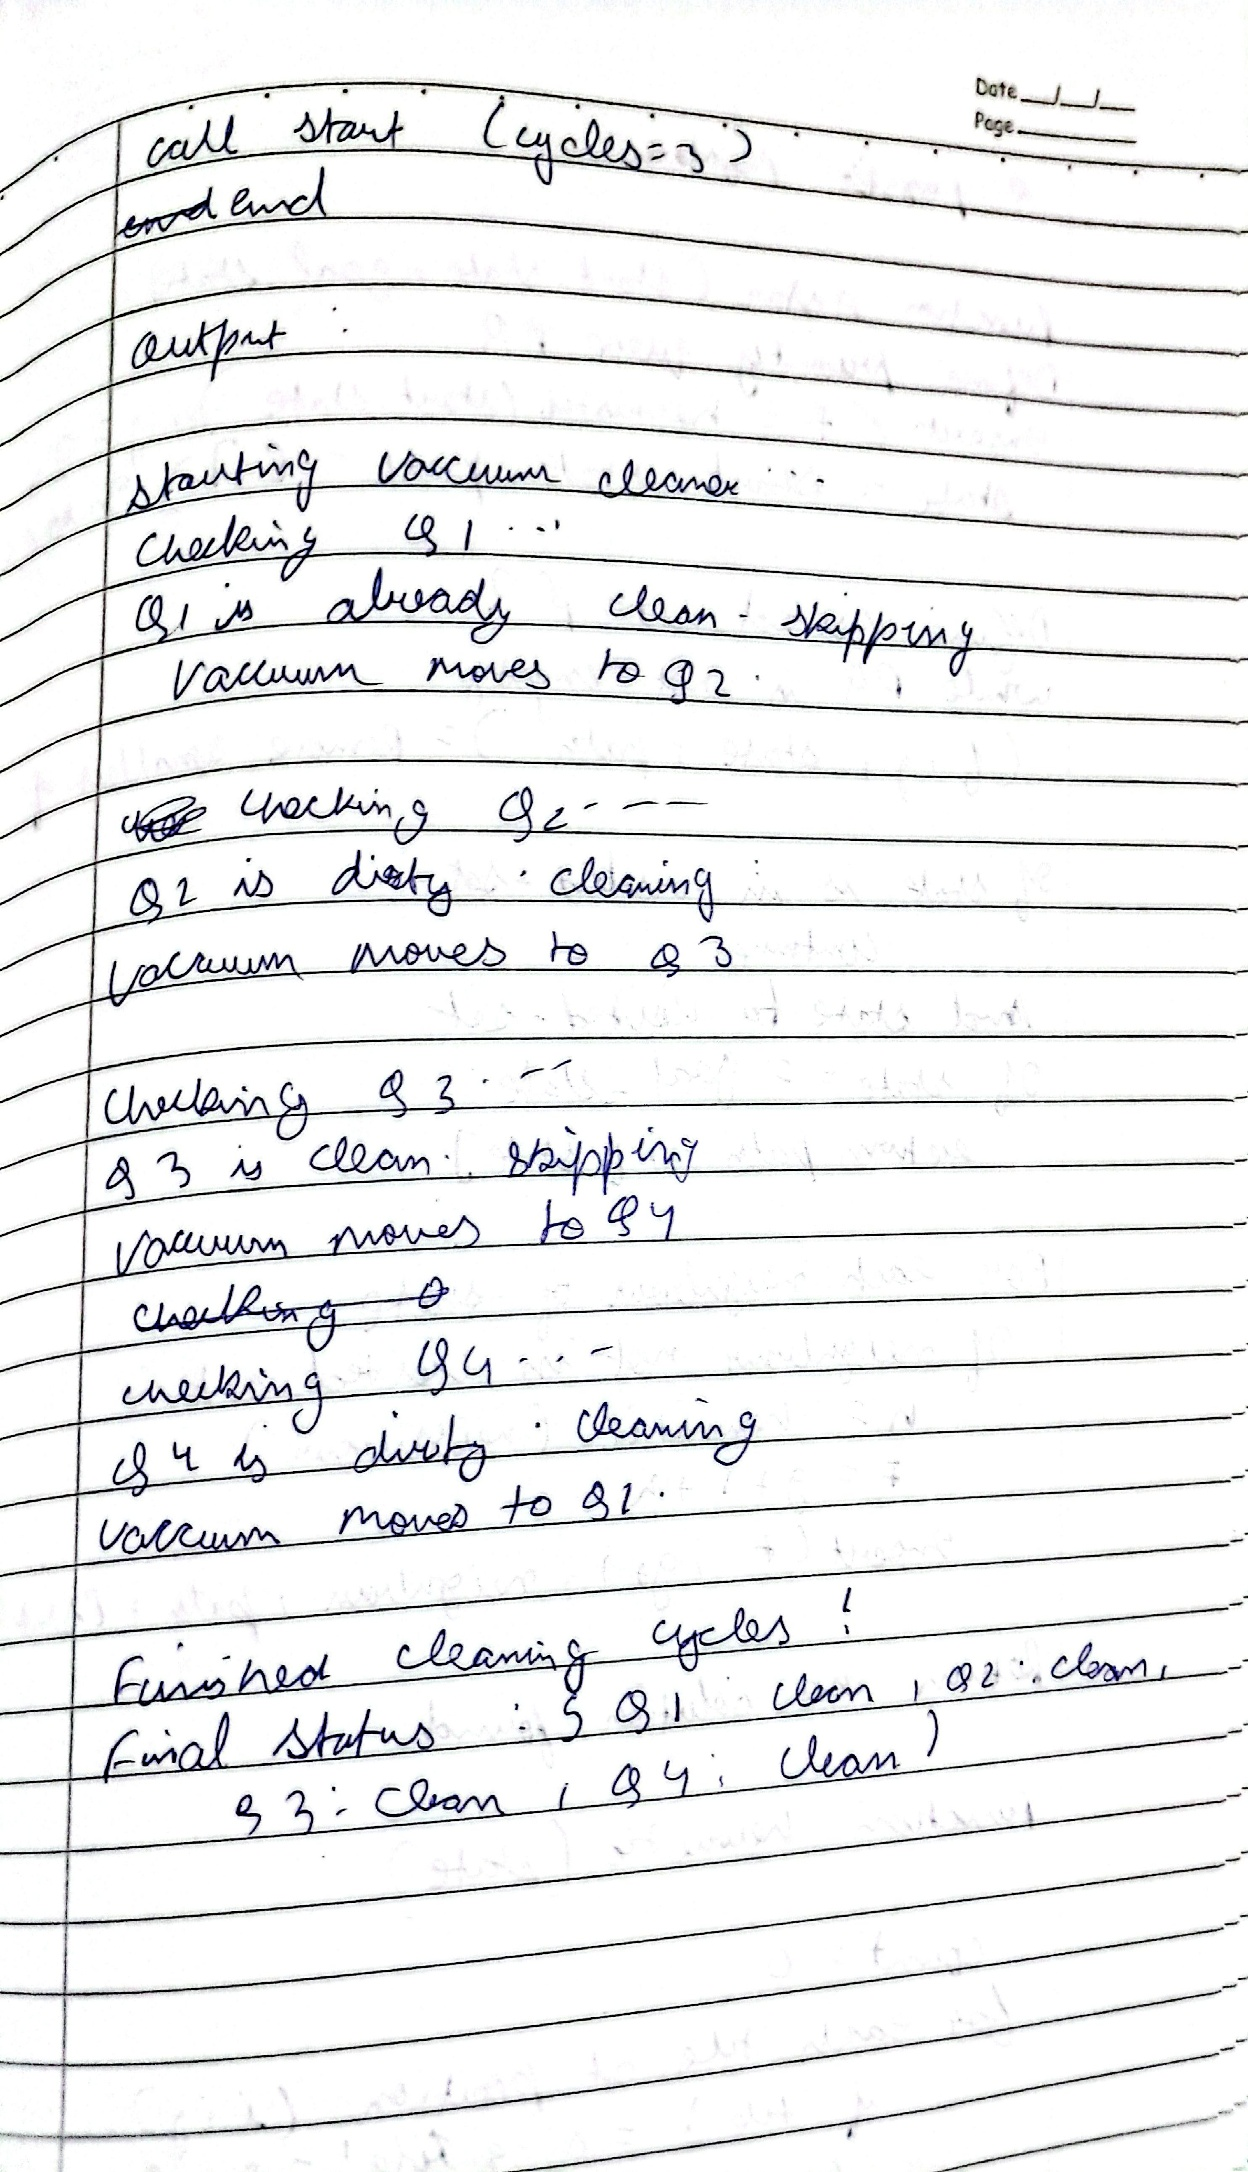 Date __/__/__
Page
call start (cycles=3)
end end
output :
starting vaccuum cleaner ...
Checking Q1 ...
Q1 is already clean. skipping
Vaccuum moves to Q2.
checking Q2 - - -
Q2 is dirty . cleaning
Vaccuum moves to Q3
Checking Q3 . - -
Q3 is clean . skipping
Vaccuum moves to Q4
checking Q
checking Q4 . . . -
Q4 is dirty . cleaning
vaccuum moves to Q1.
Finished cleaning cycles !
Final status : { Q1 clean , Q2 : clean,
Q3 : clean , Q4 : clean }